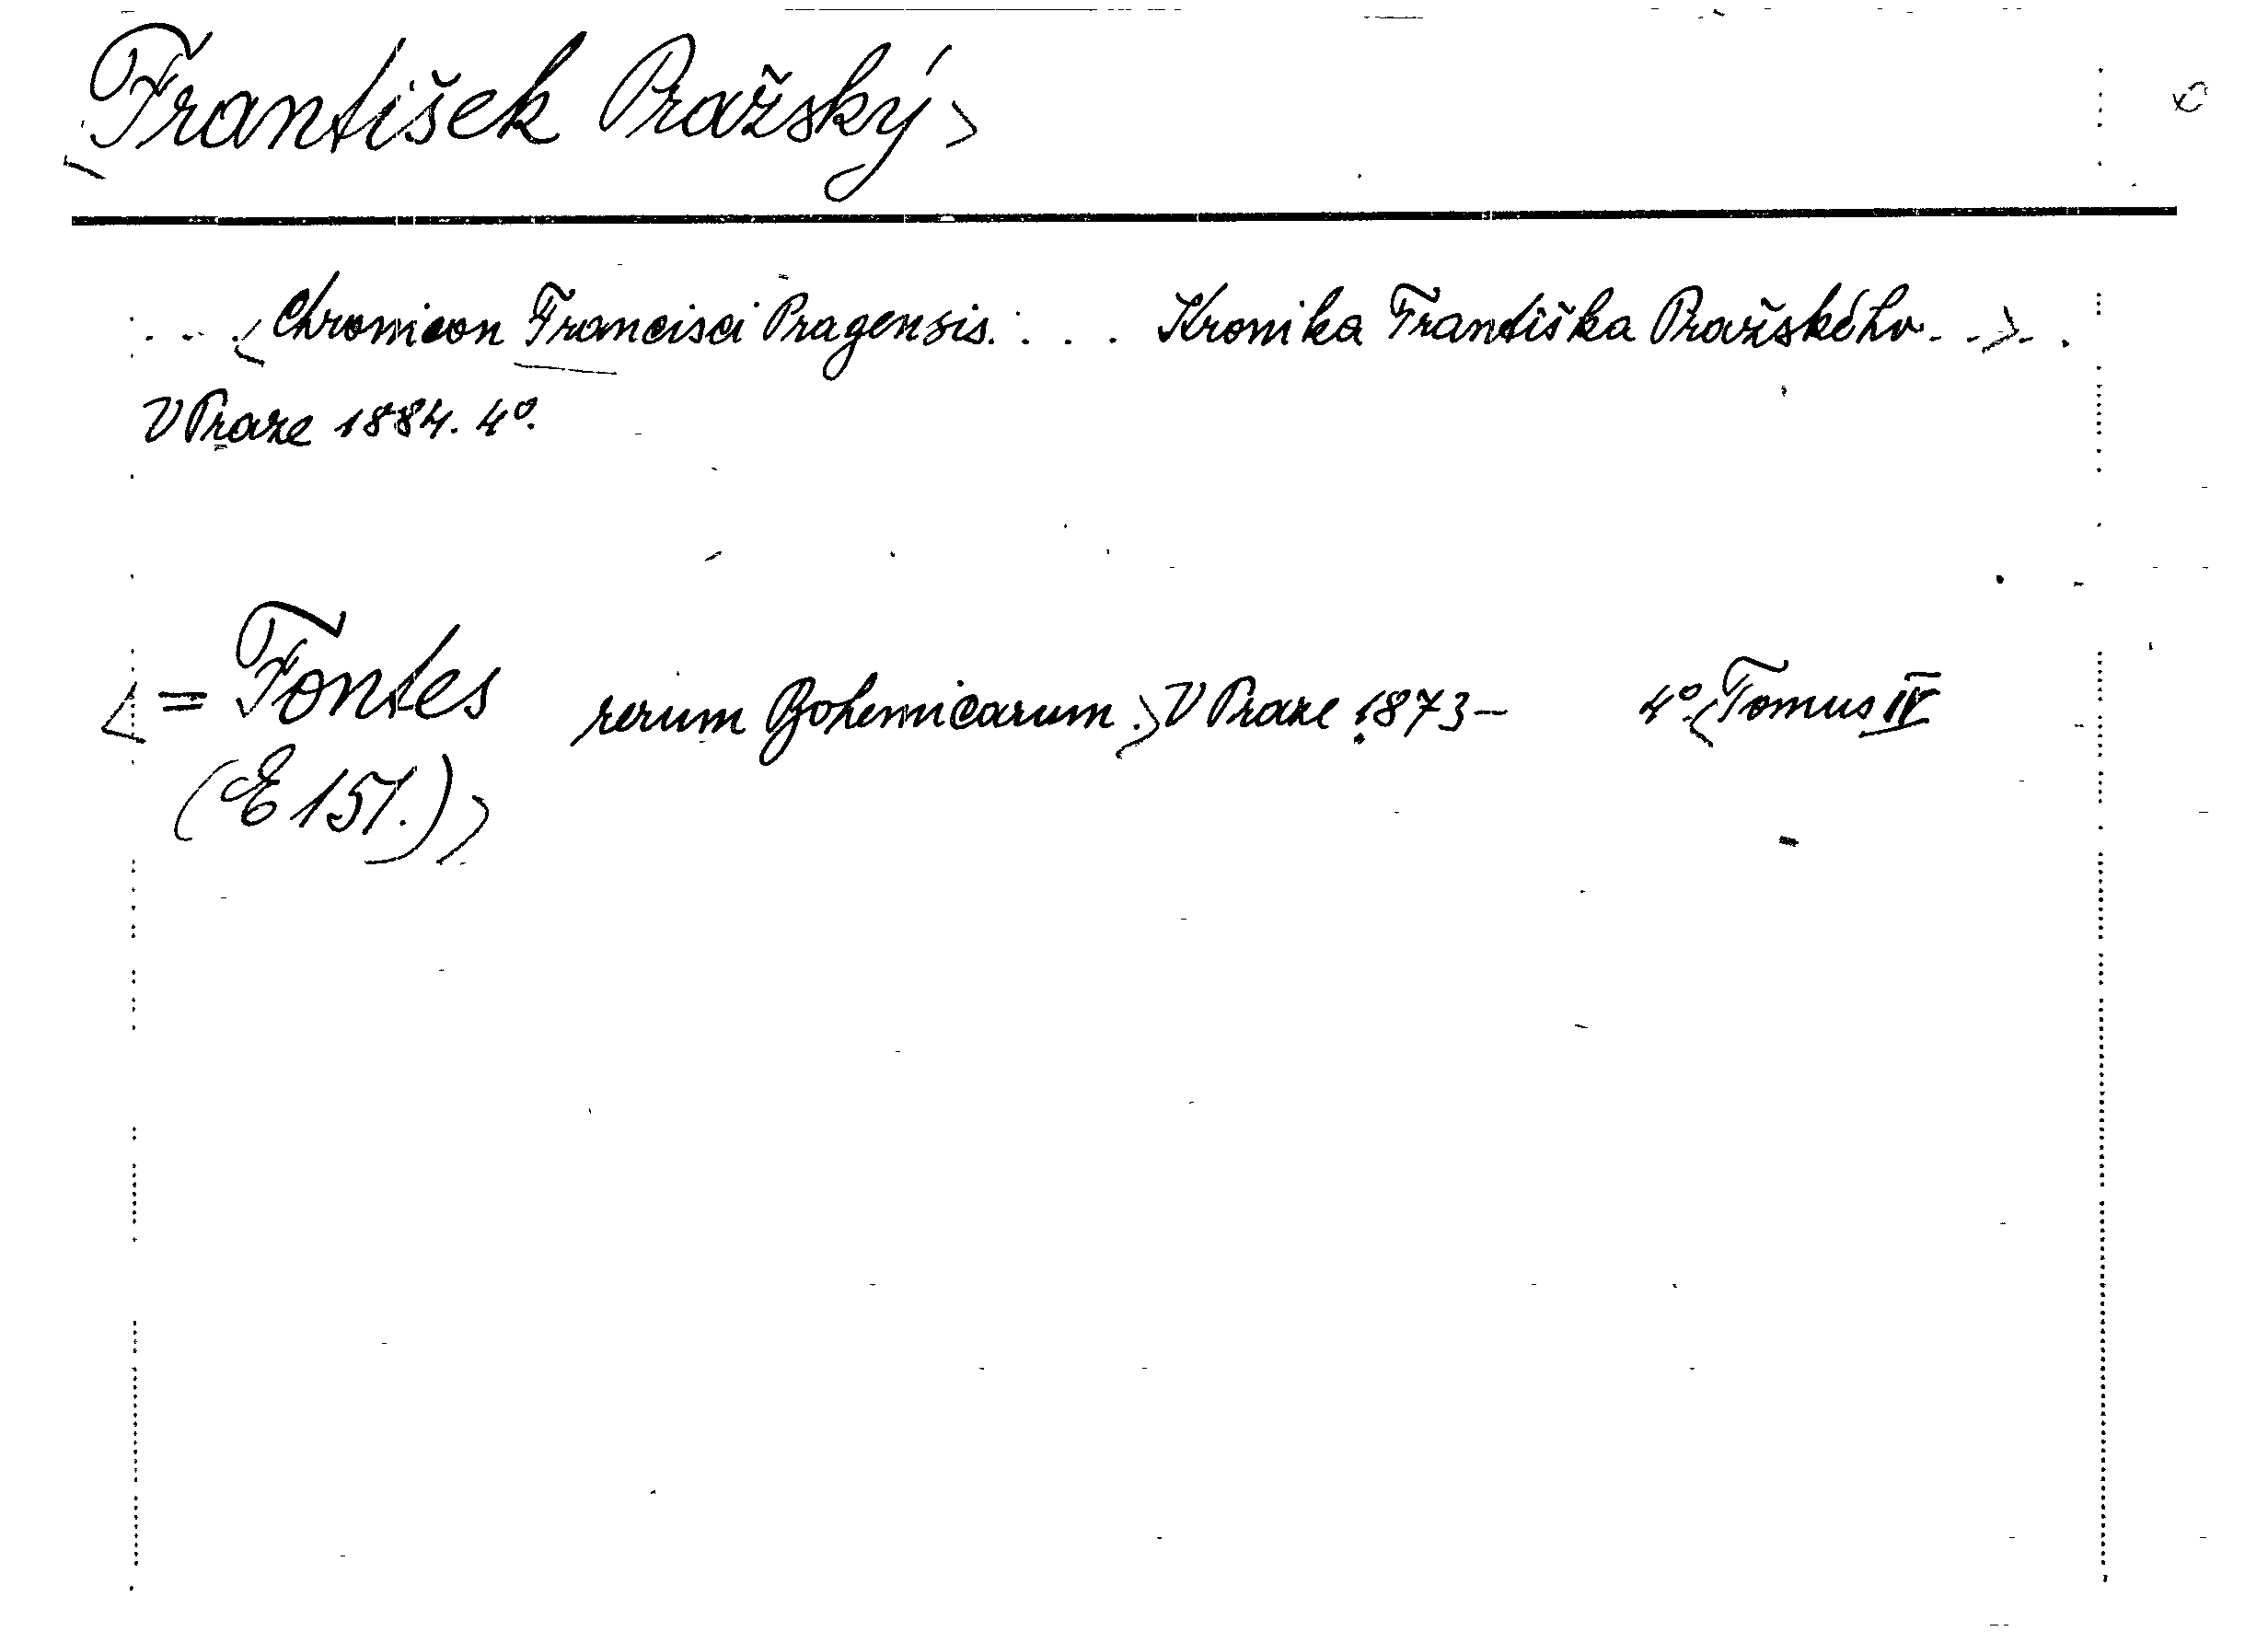 <František Pražský>
... <Chronicon Francisci Pragensis.... Kronika Františka Pražského..>..
V Praze 1884. 4°.
<= Fontes rerum Bohemicarum.> V Praze 1873– 4°. <Tomus IV
(E 151.)>